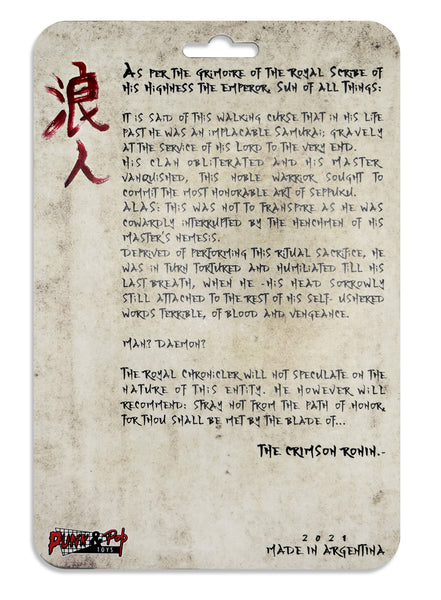 浪
人
As per the Grimoire of the Royal Scribe of
His Highness the Emperor, Sun of all Things:
It is said of this walking curse that in his life
past he was an implacable Samurai; gravely
at the service of his Lord to the very end.
His clan obliterated and his master
vanquished, this noble warrior sought to
commit the most honorable art of Seppuku.
Alas; this was not to transpire as he was
cowardly interrupted by the henchmen of his
master's nemesis.
Deprived of performing this ritual sacrifice, he
was in turn tortured and humiliated till his
last breath, when he -his head sorrowly
still attached to the rest of his self- ushered
words terrible, of blood and vengeance.
Man? Daemon?
The royal chronicler will not speculate on the
nature of this entity. He however will
recommend: stray not from the path of honor,
for thou shall be met by the blade of...
The Crimson Ronin.-
Punk & Pop
TOYS
2021
Made in Argentina